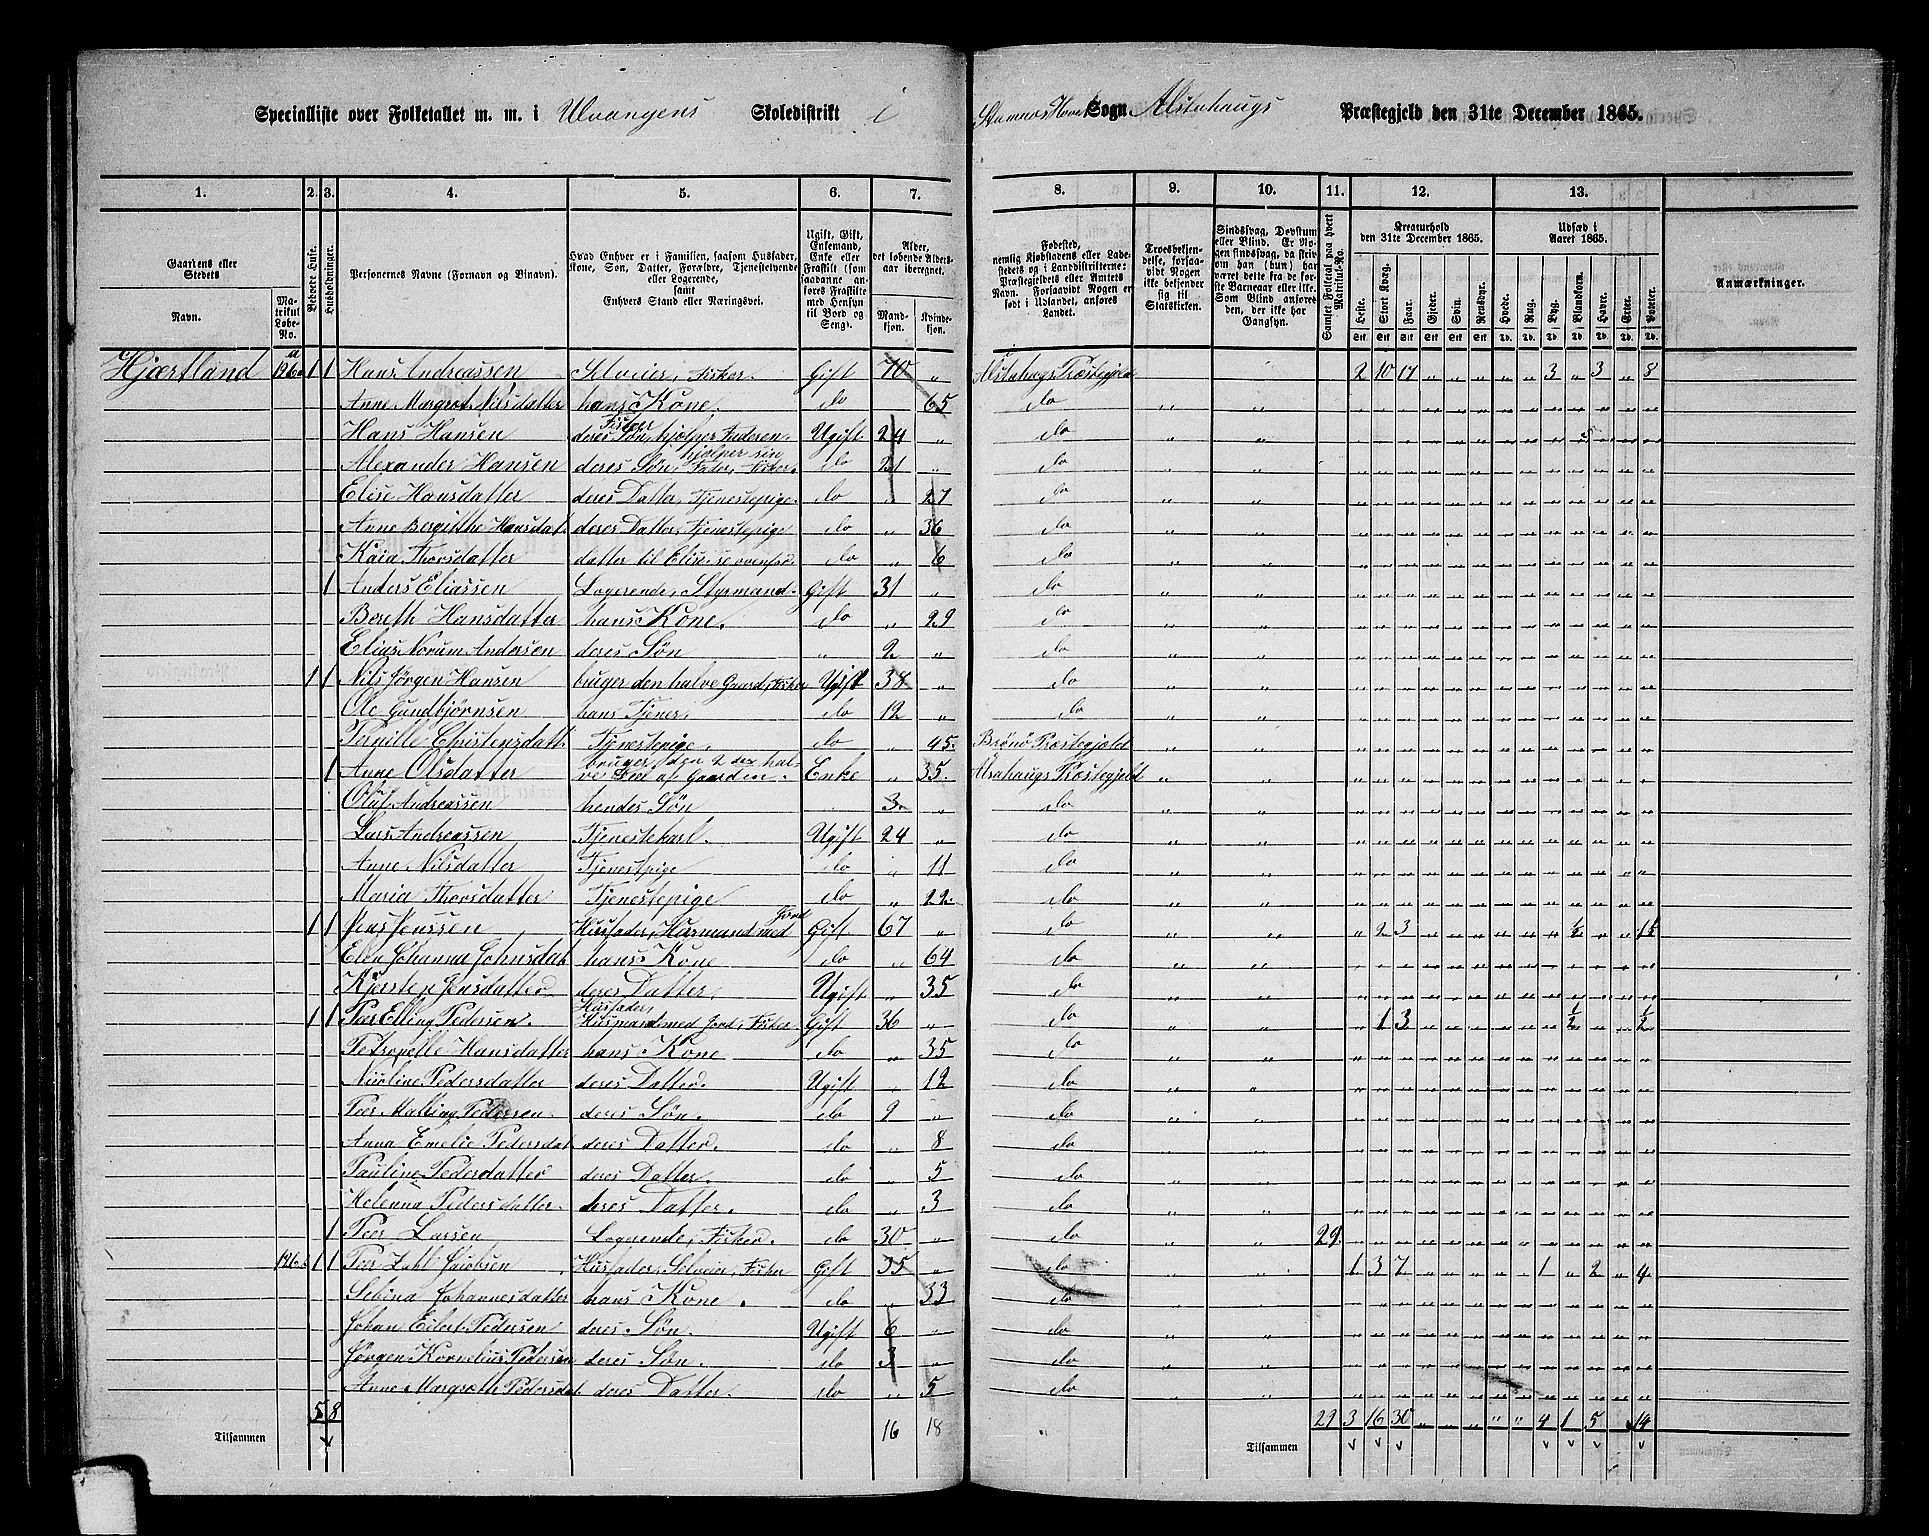 Specialliste over Folketallet m. m. i Ulvangens Skoledistrikt i Stamnes Hoved Sogn Alstahaugs Præstegjeld den 31te December 1865.
1. 2. 3. 4. 5. 6. 7. 8. 9. 10. 11. 12. 13.
Gaardens eller Stedets
Navn.
Matrikul Løbe-No.
Beboede Huse.
Husholdninger.
Personernes Navne (Fornavn og Binavn).
Hvad Enhver er i Familien, saasom Husfader, Kone, Søn, Datter, Forældre, Tjenestetyende eller Logerende, samt Enhvers Stand eller Næringsvei.
Ugift, Gift, Enkemand, Enke eller Fraskilt (som saadanne anføres Fraskilte med Hensyn til Bord og Seng).
Alder, det løbende Aldersaar iberegnet.
Mandkjøn. Kvindekjøn.
Fødested, nemlig Kjøbstadens eller Ladestedets og i Landdistrikterne: Præstegjeldets eller Amtets Navn. Forsaavidt Nogen er født i Udlandet, anføres Landet.
Troesbekjendelse, forsaavidt Nogen ikke bekjender sig til Statskirken.
Sindssvag, Døvstum eller Blind. Er Nogen sindssvag, da skrives om han (hun) har været dette fra de første Barneaar eller ikke. Som Blind anføres den, der ikke har Gangsyn.
Samlet Folketal paa hvert Matrikul-No.
Kreaturhold den 31te December 1865.
Heste. Stort Kvæg. Faar. Gjeder. Svin. Rensdyr.
Udsæd i Aaret 1865.
Hvede. Rug. Byg. Blandkorn. Havre. Erter. Poteter.
Anmærkninger.
Hjærtland 126a 1 1 Hans Andreassen Selveier, Fisker. Gift 70 „ Alstahaugs Præstegjeld 2 10 17 „ „ „ „ „ 3 „ 3 „ 8
Anne Margret Nilsdatter hans Kone. do „ 65 do
Hans Hansen deres Søn, hjælper Faderen. Fisker Ugift 24 „ do
Alexander Hansen deres Søn, hjelper sin Fader, Fisker. do 21 „ do
Elise Hansdatter deres Datter, Tjenestepige. do „ 27 do
Anne Bergitthe Hansdat. deres Datter, Tjenestepige do „ 36 do
Kaia Thorsdatter datter til Elise, se ovenfor do „ 6 do
1 Anders Eliassen Logerende, Styrmand. Gift 31 „ do
Bereth Hansdatter hans Kone. do „ 29 do
Elias Norum Andersen deres Søn „ 2 „ do
1 1 Nils Jørgen Hansen bruger den halve Gaard, Fisker Ugift 38 „ do
Ole Gundbjørnsen hans Tjener, do 12 „ do
Pernille Christensdatt. Tjenestepige. do „ 45 Brønø Præstegjeld
1 Anne Olsdatter bruger den 2 den halve Deel af Gaarden. Enke „ 35 Alstahaugs Præstegjeld
Oluf Andreassen hendes Søn 3 „ do
Lars Andreassen Tjenestekarl. Ugift 24 „ do
Anne Nilsdatter Tjenestpige do „ 11 do
Maria Thorsdatter Tjenestepige do „ 22 do
1 1 Jens Jenssen Husfader, Husmand med Jord Gift 67 „ do „ 2 3 „ „ „ „ „ „ ½ „ „ 1½
Elen Johanna Johnsdatt hans Kone do „ 64 do
Kjersten Jensdatter deres Datter, Ugift „ 35 do
1 1 Peer Elling Pedersen. Husfader, Husmand med Jord, Fisker Gift 36 „ do „ 1 3 „ „ „ „ „ „ ½ „ „ ½
Petronelle Hansdatter hans Kone do „ 35 do
Nicoline Pedersdatter deres Datter. Ugift „ 12 do
Peer Malling Pedersen deres Søn. do 9 „ do
Anna Emelie Pedersdat. deres Datter. do „ 8 do
Pauline Pedersdatter deres Datter. do „ 5 do
Helenna Pedersdatter. deres Datter. do „ 3 do
1 Peer Larsen Logerende, Fisker. do 30 „ do 29
126 1 1 Peer Zahl Jacobsen Husfader, Selveier, Fisker Gift 35 „ do 1 3 7 „ „ „ „ „ 1 „ 2 „ 4
Sebina Johannesdatter hans Kone. do „ 33 do
Johan Eilert Pedersen deres Søn. Ugift 6 „ do
Jørgen Kornelius Pedersen deres Søn. do 3 „ do
Anne Margreth Pedersdat. deres Datter. do „ 5 do
5 8
Tilsammen 16 18 Tilsammen 29 3 16 30 „ „ „ „ „ 4 1 5 „ 14